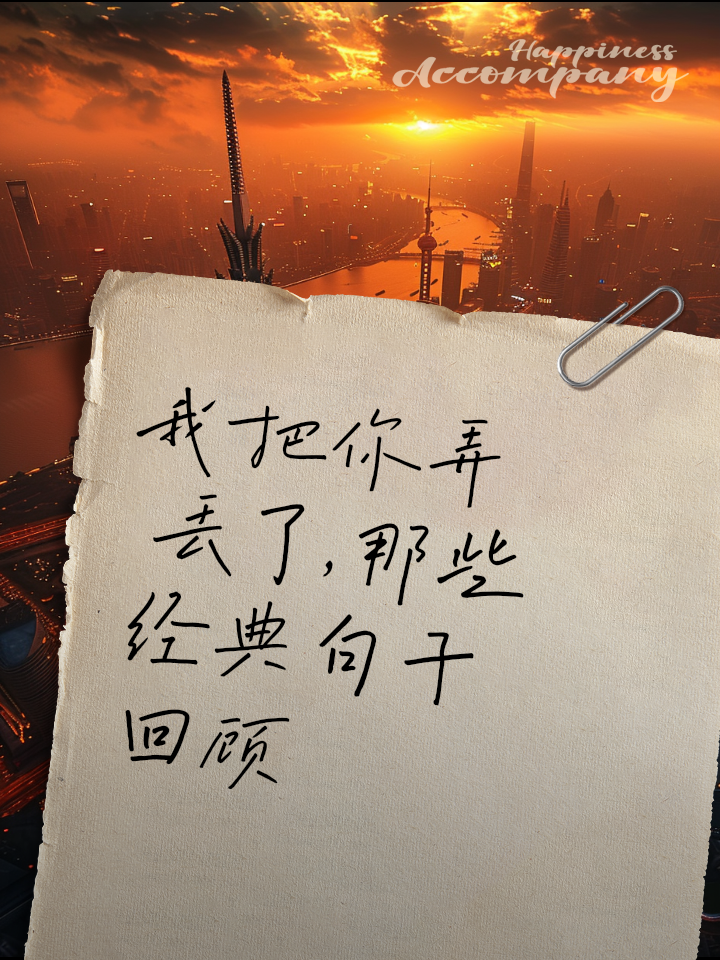 Happiness
Accompany
我把你弄
丢了,那些
经典句子
回顾